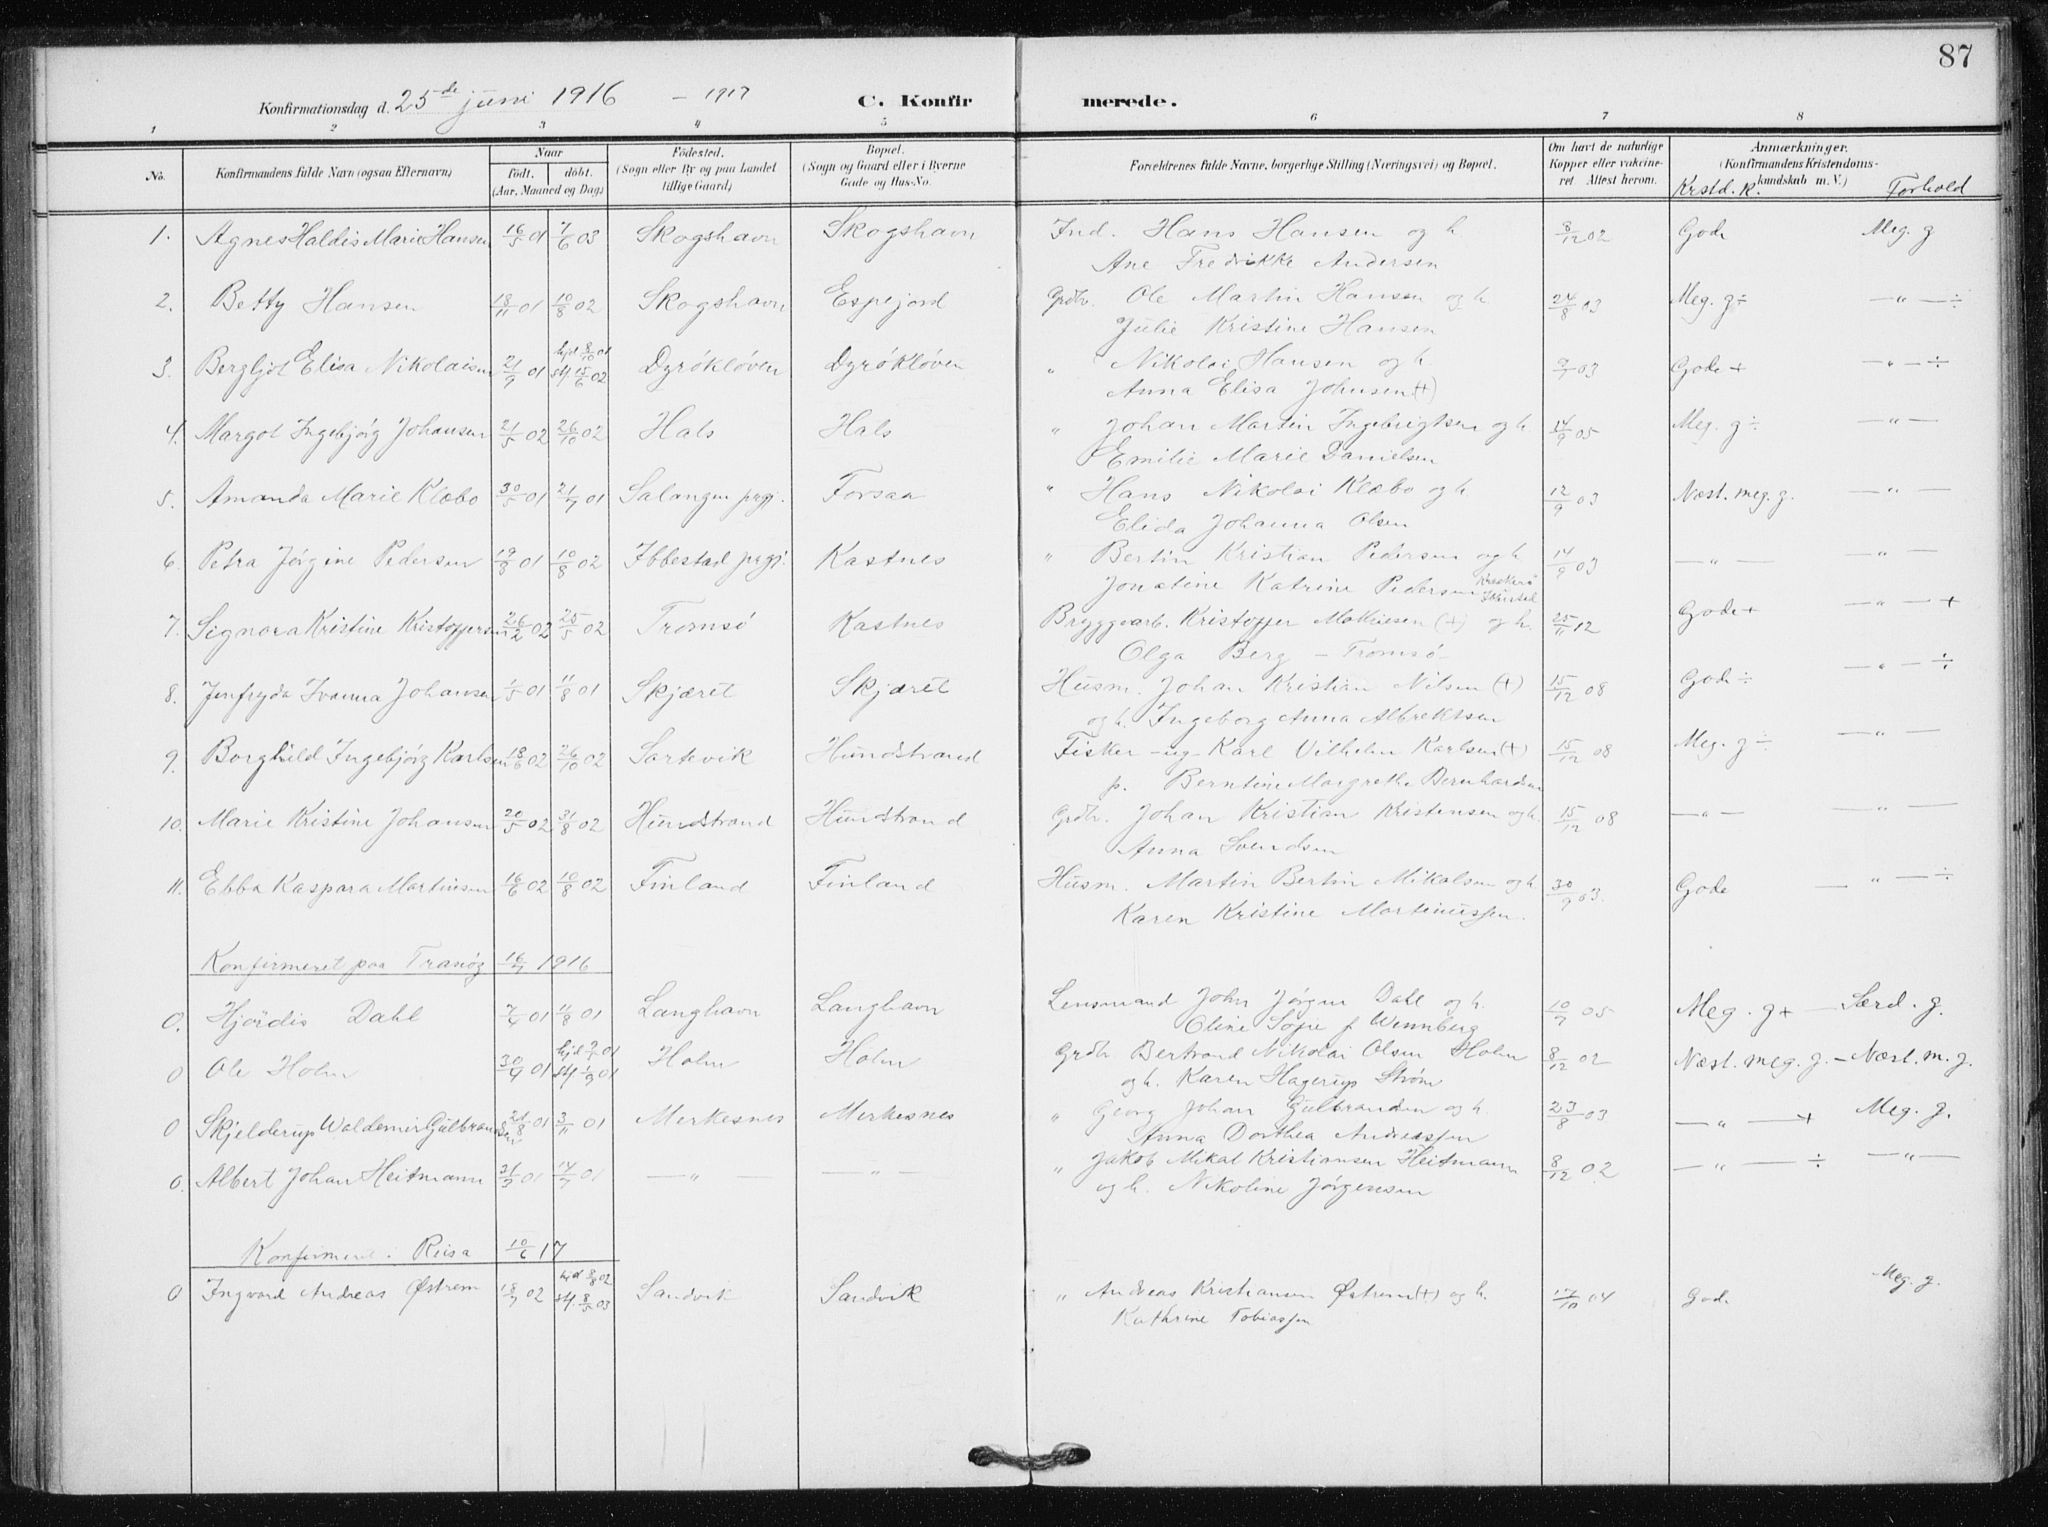 87
Konfirmationsdag d. 25de juni 1916 – 1917 C. Konfirmerede.
1 2 3 4 5 6 7 8
No. Konfirmandens fulde Navn (ogsaa Efternavn) Naar født. døbt. (Aar, Maaned og Dag) Fødested. (Sogn eller By og paa Landet tillige Gaard) Bopæl. (Sogn og Gaard eller i Byerne Gade og Hus-No. Forældrenes fulde Navne, borgerlige Stilling (Næringsvei) og Bopæl. Om havt de naturlige Kopper eller vakcineret. Attest herom. Anmærkninger. (Konfirmandens Kristendomskundskab m. V.) Krstd. k. Forhold
1. Agnes Haldis Marie Hansen 16/5 01 7/6 03 Skogshavn Skogshavn Ind. Hans Hansen og h. 8/12 02 Gode Meg. g
Ane Fredrikke Andersen
2. Betty Hansen 18/11 01 10/8 02 Skogshavn Espejord Grdbr. Ole Martin Hansen og h. 24/8 03 Meg. g ÷ — " — ÷
Julie Kristine Hansen
3. Bergljot Elisa Nikolaisen 21/9 01 hjd 8/10 01 st 15/6 02 Dyrökløven Dyrökløven " Nikolai Hansen og h. 9/7 03 Gode + — " — ÷
Anna Elisa Johnsen (+)
4. Margot Ingebjörg Johansen 21/5 02 26/10 02 Hals Hals " Johan Martin Ingebrigtsen og h. 14/9 05 Meg. g ÷ — " —
Emilie Marie Danielsen
5. Amanda Marie Klæbo 30/5 01 21/7 01 Salangen prgj. Forsaa " Hans Nikolai Klæbo og h. 12/9 03 Næst. meg. g. — " —
Elida Johanna Olsen
6. Petra Jörgine Pedersen 19/8 01 10/8 02 Ibbestad prgj. Kastnes " Bertin Kristian Pedersen og h. 14/9 03 — " — — " —
Jonætine Katrine Pedersen
7. Signora Kristine Kristoffersen 26/2 02 25/5 02 Tromsö Kastnes Bryggearb. Kristoffer Mathiesen (+) og h. 25/11 12 Gode + — " — +
Olga Berg – Tromsö –
8. Jenfryda Ivanna Johansen 1/5 01 11/8 01 Skjæret Skjæret Husm. Johan Kristian Nilsen (+) 15/12 08 Gode ÷ — " — ÷
og h. Ingeborg Anna Albrektsen
9. Borghild Ingebjörg Karlsen 18/6 02 26/10 02 Sørkvik Hundstrand Fisker – ug – Karl Vilhelm Karlsen (+) 15/12 08 Meg. g ÷ — " —
p. Berntine Margrethe Bernhardsen
10. Marie Kristine Johansen 20/5 02 31/8 02 Hundstrand Hundstrand Grdbr. Johan Kristian Kristensen og h. 15/12 08 — " — — " —
Anna Svendsen
11. Ebba Kaspara Martinsen 16/6 02 10/8 02 Finland Finland Husm. Martin Bertin Mikalsen og h. 30/9 03. Gode — " — ÷
Karen Kristine Martinussen.
Konfirmeret paa Tranöy 16/7 1916
0. Hjördis Dahl 7/4 01 11/8 01 Langhavn Langhavn Lensmand John Jörgen Dahl og h. 10/9 05 Meg. g + — Særd. g.
Oline Sofie f. Wennberg
0 Ole Holm 30/4 01 hjd 7/7 01 st 1/9 01 Holm Holm Grdbr. Bertrand Nikolai Olsen Holm 8/12 02 Næst. meg. g. – Næst. m. g.
og h. Karen Hagerup Ström
0 Skjelderup Waldemir Gulbrandsen 21/8 01 3/11 01 Merkesnes Merkesnes " Georg Johan Gulbrandsen og h. 23/8 03 — " — + Meg. g.
Anna Dorthea Andreassen
0. Albert Johan Heitmann 21/3 01 14/7 01 — " — — " — " Jakob Mikal Kristiansen Heitmann 8/12 02 — " — ÷ — " —
og h. Nikoline Jörgensen
Konfirmeret i Reisa 10/6 17
0 Ingvard Andreas Østrem 18/7 02 hjd 3/8 02 st. 8/5 03 Sandvik Sandvik " Andreas Kristiansen Østrem (+) og h. 17/10 04 Gode Meg. g.
Kathrine Tobiassen